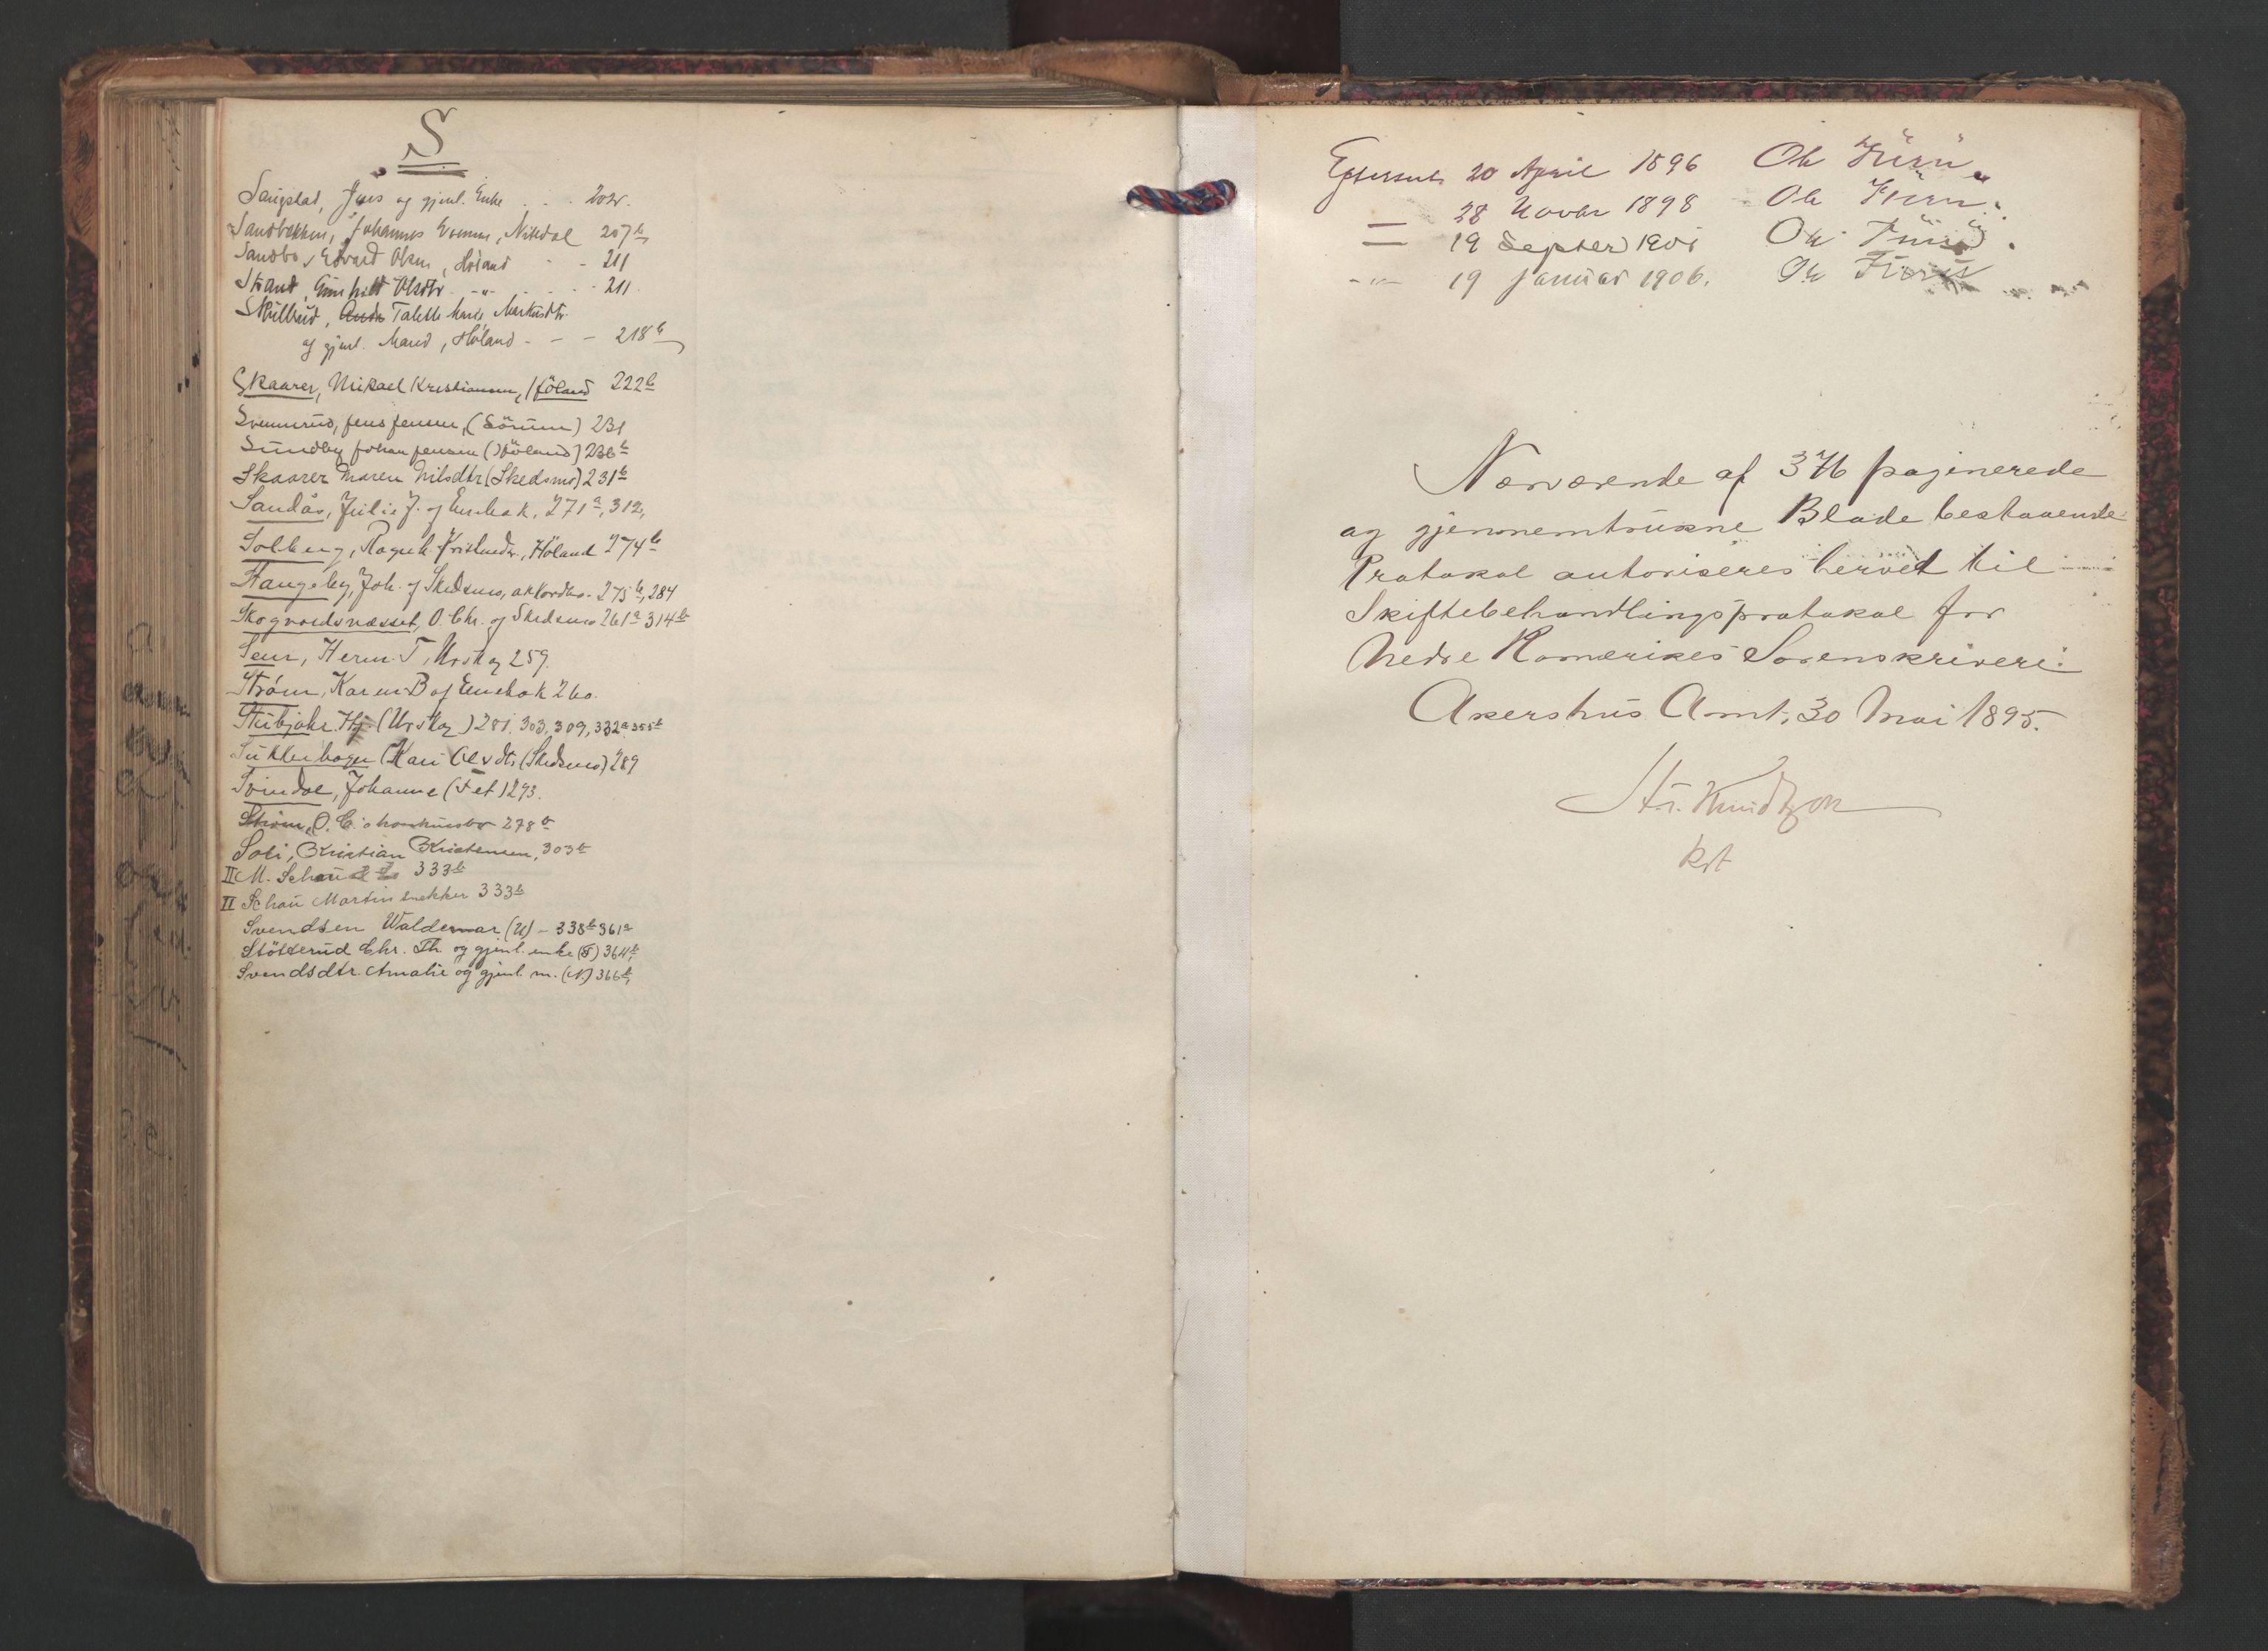 S
Saugstad, Jens og gjenl. Enke . . . 202
Sandbækken, Johannes Evensen, Nittedal 207b
Sandbo, Edvard Olsen, Høland - - 211
Strand, Gunhild Olsdtr. -"- . . - 211
Skullerud, Talette Marie Markusdtr.
og gjenl. Mand, Høland - - - 218b
Skaarer, Mikael Kristiansen, Høland 222b
Svennerud, Jens Jensen, (Sörum) 231
Sundby Johan Jensen (Höland) 236b
Skaarer Maren Nilsdtr (Skedsmo) 231b
Sandås, Julie J. af Enebak, 271a, 312,
Solberg, Ragnh. Kristendr., Höland 274b
Stangeby, Joh. af Skedsmo, akkordbo. 275b, 284
Skogvordsnæsset, O. Chr. af Skedsmo 261a 314b
Seur, Herm. T, Urskog 259.
Strøm, Karen B af Enebak 260.
Stubjahr. Hj. (Urskog) 281, 303, 309, 332a 355b
Suttenhagen (Kari Olsdtr (Skedsmo) 289
Svindal, Johanne (Fet) 293.
Strøm, O. C.s konkursbo 278b
Soli, Kristian Kristensen, 303b
II M. Schau 333b
II Schau Martin snekker 333b
Svendsen Waldemar (U) - 338b 361a
Stötterud Chr. Th. og gjenl. enke (F) 364b,
Svendsdtr. Amalie og gjenl. m. (N) 366b,
Efterseet 20 April 1896 Ole Furu
— 28 Novbr 1898 Ole Furu.
— 19 Septber 1901 Ole Furu.
-"- 19 Januar 1906. Ole Furu
Nærværende af 376 paginerede
og gjennemtrukne Blade bestaaende
Protokol autoriseres herved til
Skiftebehandlingsprotokol for
Nedre Romerikes Sorenskriveri.
Akershus Amt, 30 Mai 1895.
Kst